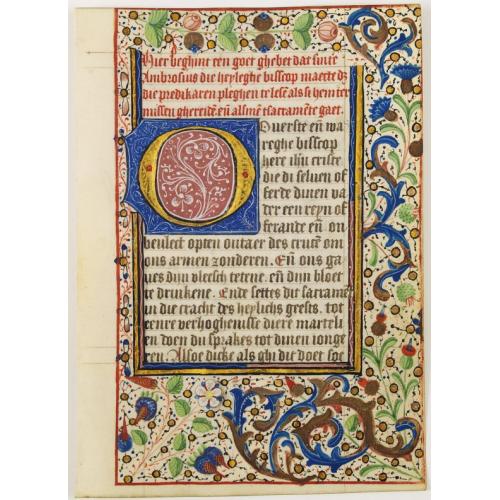 Hier beghint een goet ghebet dat sinte
Ambrosius die heyleghe bisscop maecte dz
die predikaren pleghen te lesen als si hem ter
missen ghereiden en̄ alsmē tsacramēte gaet
Ouerste en̄ wa
reghe bisscop
here ihū criste
die di seluen of
ferde dinen va
der een reyn of
ferande en̄ on
beulect opten outaer des crucē om
ons armen zonderen. En̄ ons ga
ues dijn vleesch tetene. en̄ dijn bloet
te drinkene. Ende settes dit sacramē
in die cracht des heylichs geests. tot
eenre verhoghenisse diere martelē
en doen du sprakes tot dinen ionge
ren. Alsoe dicke als ghi die doet soe